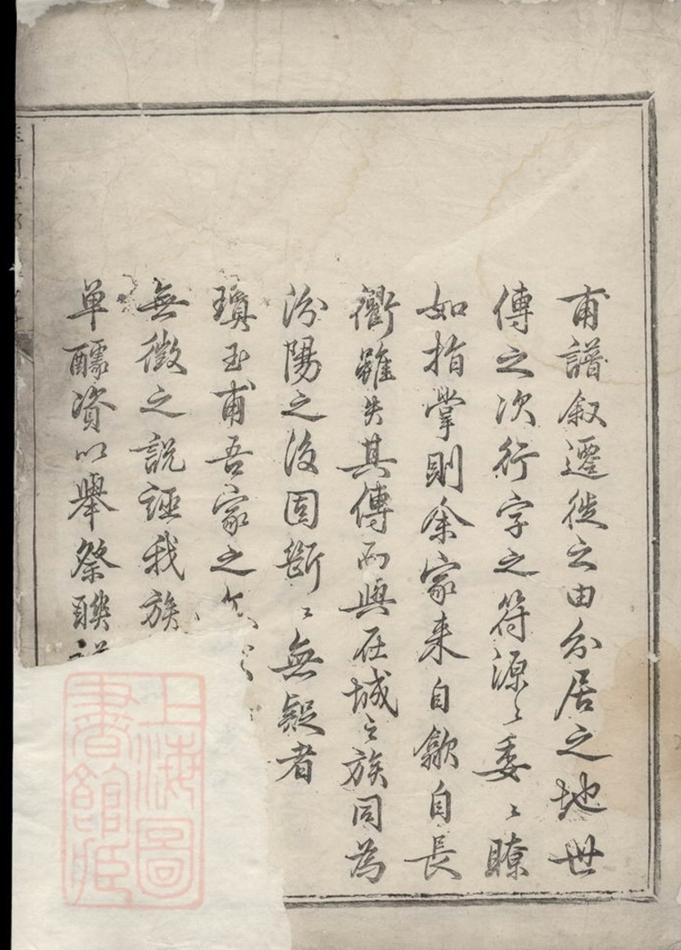 甫譜叙遷徙之由分居之地世
傳之次行字之符源〻委〻瞭
如指掌則余家来自歙自長
衢雖失其傳而與在城之族同為
汾陽之後固斷〻無疑者
瑱玉甫吾家之
無徵之說誣我族
単醵資以舉祭聯
上海圖
書館臧